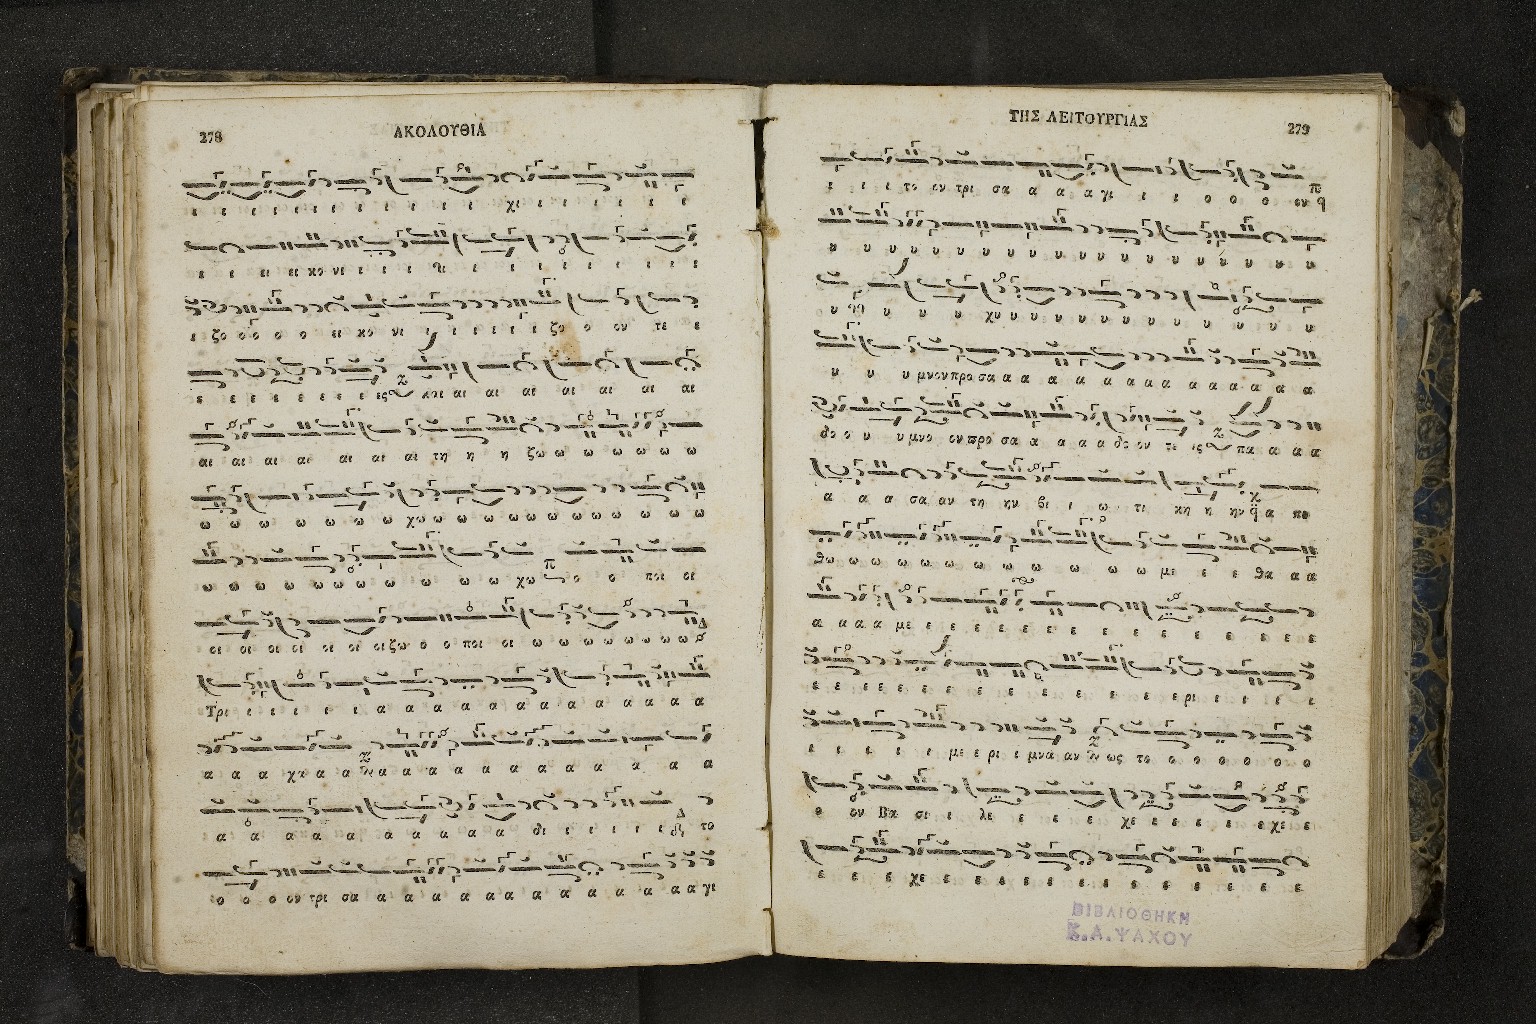 278
ΑΚΟΛΟΥΘΙΑ
ι ι ι ι ι ι ι ι ι ι ι χι ι ι ι ι ι ι
ει ει κο νι ι ι ι ι ι ι ι ι ι ι ι ι
ι ζο ο ο ο ο ει κο νι ι ι ι ι ι ι ζο ο ον τε ε
ε ε ε ε ε ε ε ες και αι αι αι αι αι αι αι
αι αι αι αι αι αι αι τη η η ζω ω ω ω ω ω ω
ω ω ω ω ω ω χω ω ω ω ω ω ω ω ω ω ω ω
ω ω ω ω ω ω ω ω ω ω ω χω ο ο ποι οι
οι οι οι οι οι οι οι ζω ο ο ποι οι ω ω ω ω ω ω ω ω ω
Τρι ι ι ι ι ι α α α α α α α α α α α α α
α α α χα α α α α α α α α α α α α α α
α α α α α α α α α α α α δι ι ι ι ι ι το
ο ο ο ον τρι σα α α α α α α α α α α α α α α γι
ΤΗΣ ΛΕΙΤΟΥΡΓΙΑΣ
279
ι ι ι το ον τρι σα α α α γι ι ι ο ο ο ον
υ υ υ υ υ υ υ υ υ υ υ υ υ υ υ υ υ υ
υ υ υ υ υ χυ υ υ υ υ υ υ υ υ υ υ υ υ
υ υ υ μνον προ σα α α α α α α α α α α α α
δο ο υ υ μνο ον προ σα α α α α δο ον τε ες πα α α α
α α α σα αν τη ην βι ι ω τι κη η ην α πο
θω ω ω ω ω ω ω ω ω ω ω ω με ε ε θα α α
α α α α με ε ε ε ε ε ε ε ε ε ε ε ε ε
ε ε ε ε ε ε ε ε ε ε ε ε ε ε ρι ι ι ι ι
ι ι ι ι ι με ε ρι ι μνα αν ως το ο ο ο ο ο ο
ο ον Βα σι ι λε ε ε ε ε χε ε ε ε ε ε χε ε
ε ε ε χε ε ε ε ε ε ε ε ε ε ε ε ε ε
ΒΙΒΛΙΟΘΗΚΗ
Κ.Α.ΨΑΧΟΥ